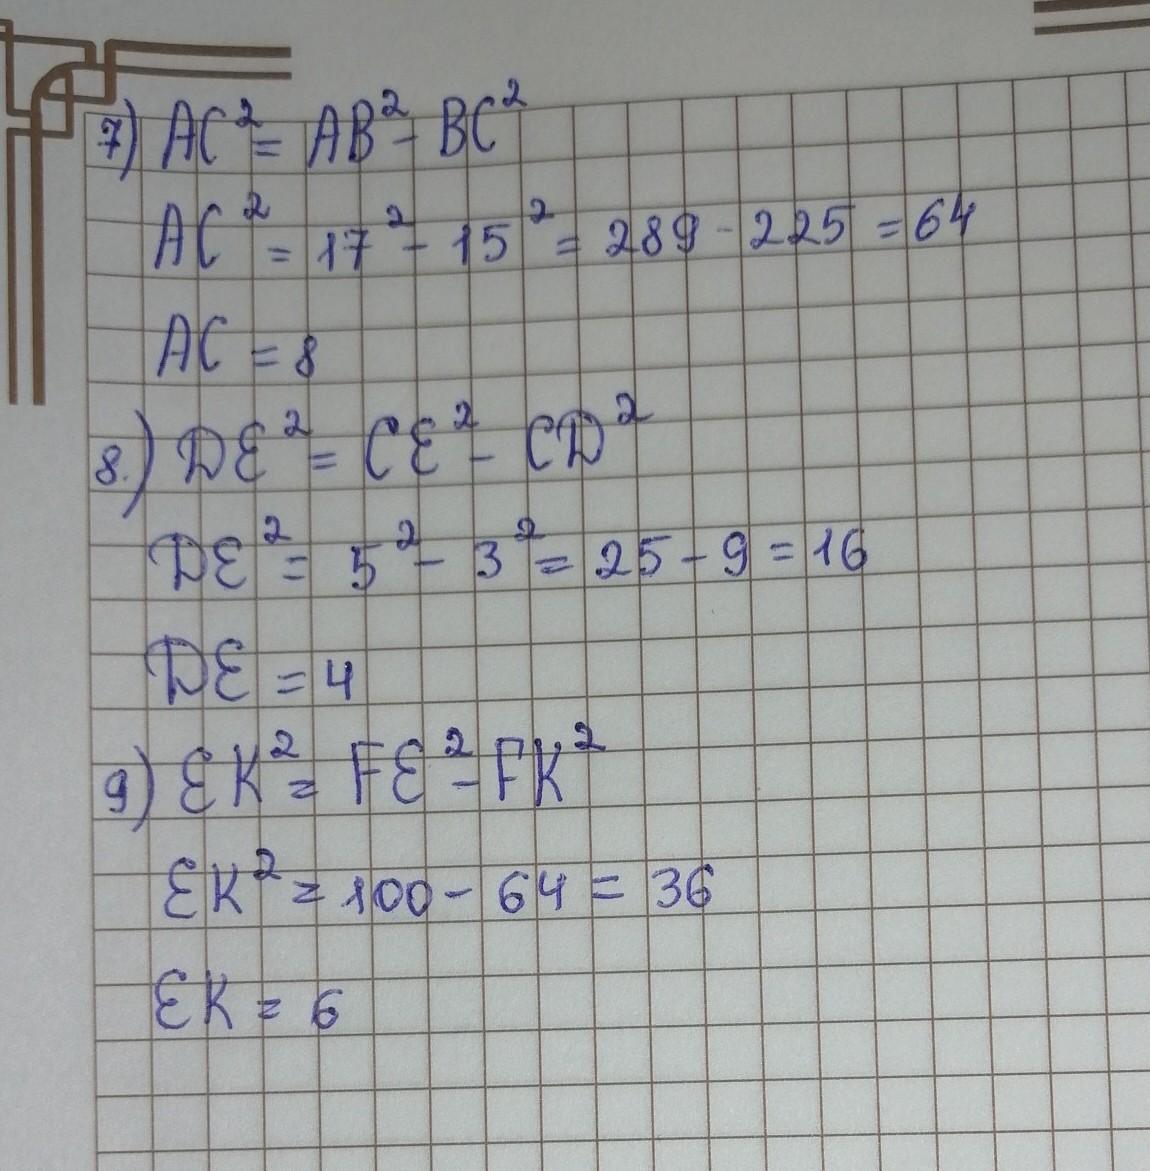 7) AC² = AB² - BC²
AC² = 17² - 15² = 289 - 225 = 64
AC = 8
8.) DE² = CE² - CD²
DE² = 5² - 3² = 25 - 9 = 16
DE = 4
9) EK² = FE² - FK²
EK² = 100 - 64 = 36
EK = 6